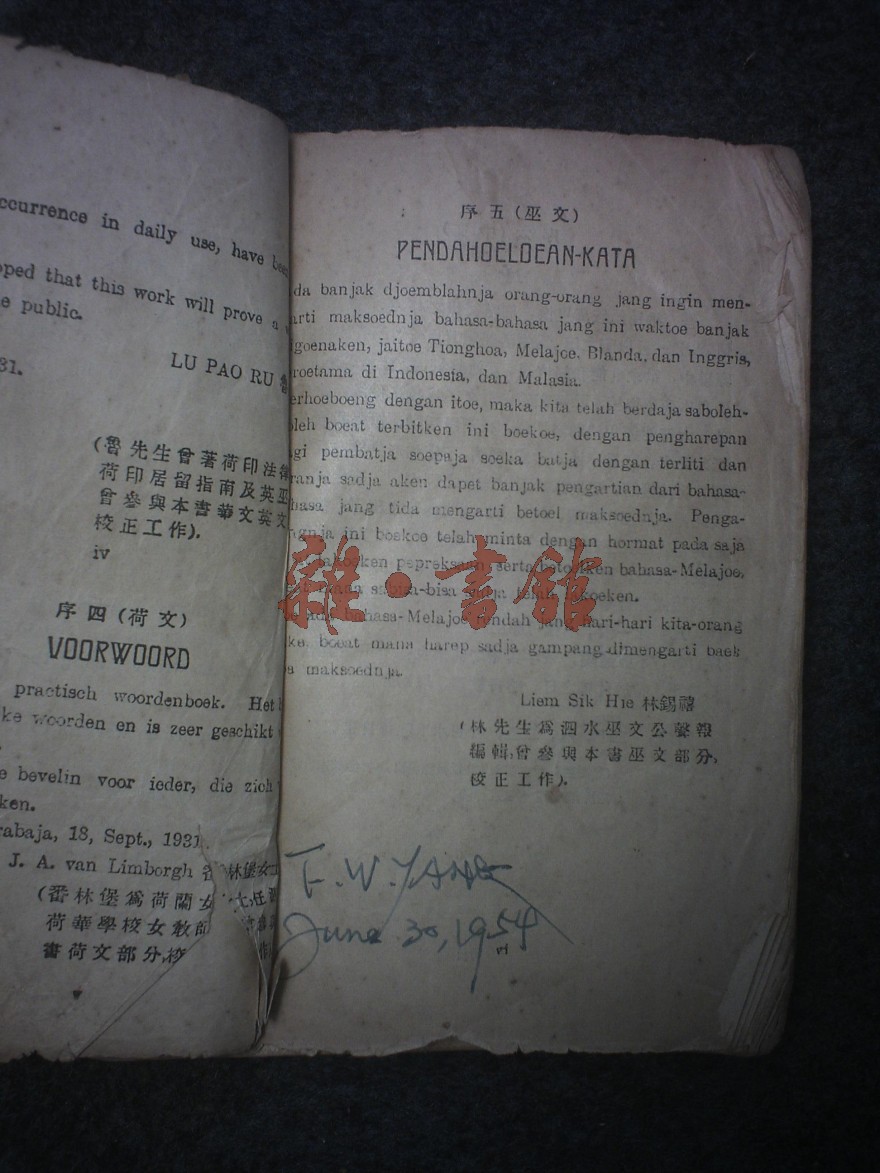 ccurrence in daily use, have bee
oped that this work will prove a
e public.
31.
LU PAO RU 魯
(魯先生曾著荷印法律
荷印居留指南及英巫
曾參與本書華文英文
校正工作).
iv
序 四 (荷 文)
VOORWOORD
practisch woordenboek. Het
ke woorden en is zeer geschikt
e bevelin voor ieder, die zich
ken.
rabaja, 18, Sept., 1931.
J. A. van Limborgh 番林堡女
(番林堡爲荷蘭女
荷華學校女敎師
書荷文部分,校
v
序 五 (巫 文)
PENDAHOELOEAN-KATA
da banjak djoemblahnja orang-orang jang ingin men-
arti maksoednja bahasa-bahasa jang ini waktoe banjak
igoenaken, jaitoe Tionghoa, Melajoe, Blanda, dan Inggris,
roetama di Indonesia, dan Malasia.
erhoeboeng dengan itoe, maka kita telah berdaja saboleh-
oleh boeat terbitken ini boekoe, dengan pengharepan
gi pembatja soepaja soeka batja dengan terliti dan
ranja sadja aken dapet banjak pengartian dari bahasa-
hasa jang tida mengarti betoel maksoednja. Penga-
ngnja ini boekoe telah minta dengan hormat pada saja
pepreksaan serta betoelken bahasa-Melajoe,
sabisa-bisa saja telah lakoeken.
bahasa-Melajoe rendah jang hari-hari kita-orang
ke, boeat mana harep sadja gampang dimengarti baek
a maksoednja.
Liem Sik Hie 林錫禧
(林先生爲泗水巫文公聲報
編輯,曾參與本書巫文部分,
校正工作).
F. W. YANG
June 30, 1954
vi
雜·書館